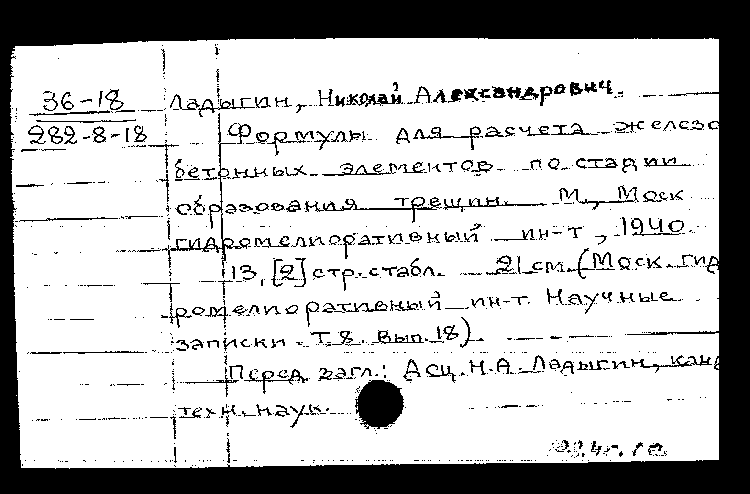 36-18 Ладыгин, Николай Александрович.
282-8-18 Формулы для расчета железо
бетонных элементов по стадии
образования трещин. М., Моск
гидромелиоративный ин-т, 1940.
13, [2] стр. с табл. 21 см. (Моск. гид
ромелиоративный ин-т. Научные
записки. Т.8. Вып. 18).
Перед загл.: Асц. Н.А. Ладыгин, канд
техн. наук.